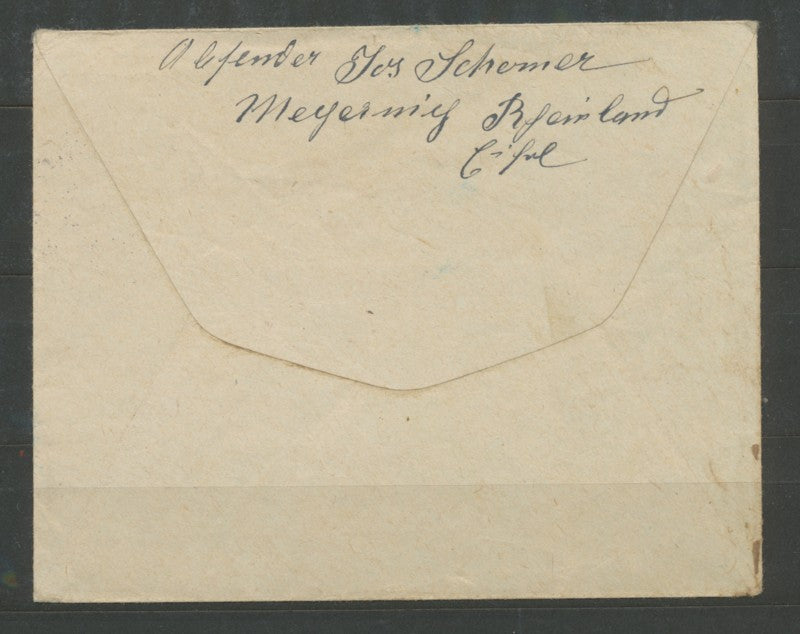 Absender Jos Schomer
Mechernich Rheinland
Eifel